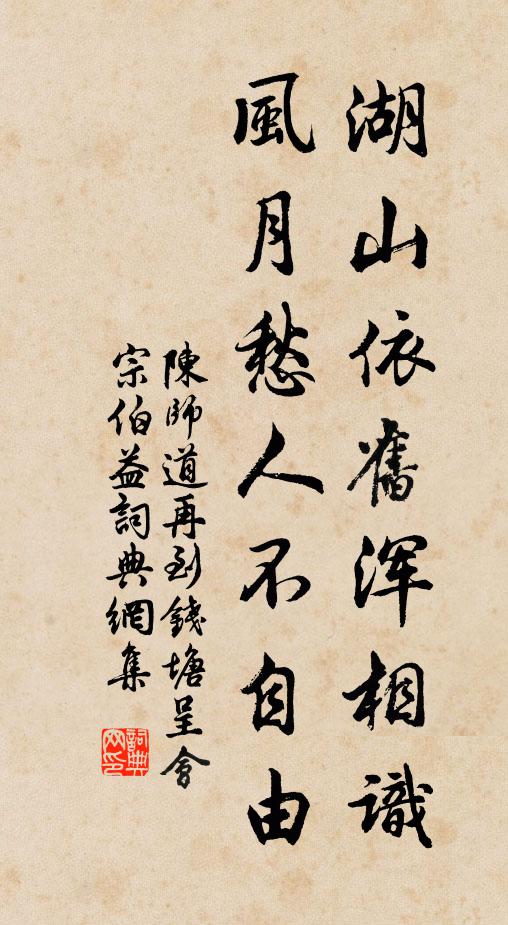 湖山依舊渾相識
風月愁人不自由
陳師道再到錢塘呈會
宗伯益詞典網集
詞典網印